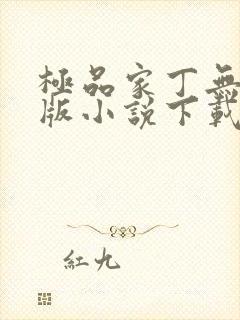 極品家丁無
版小説下載
紅九